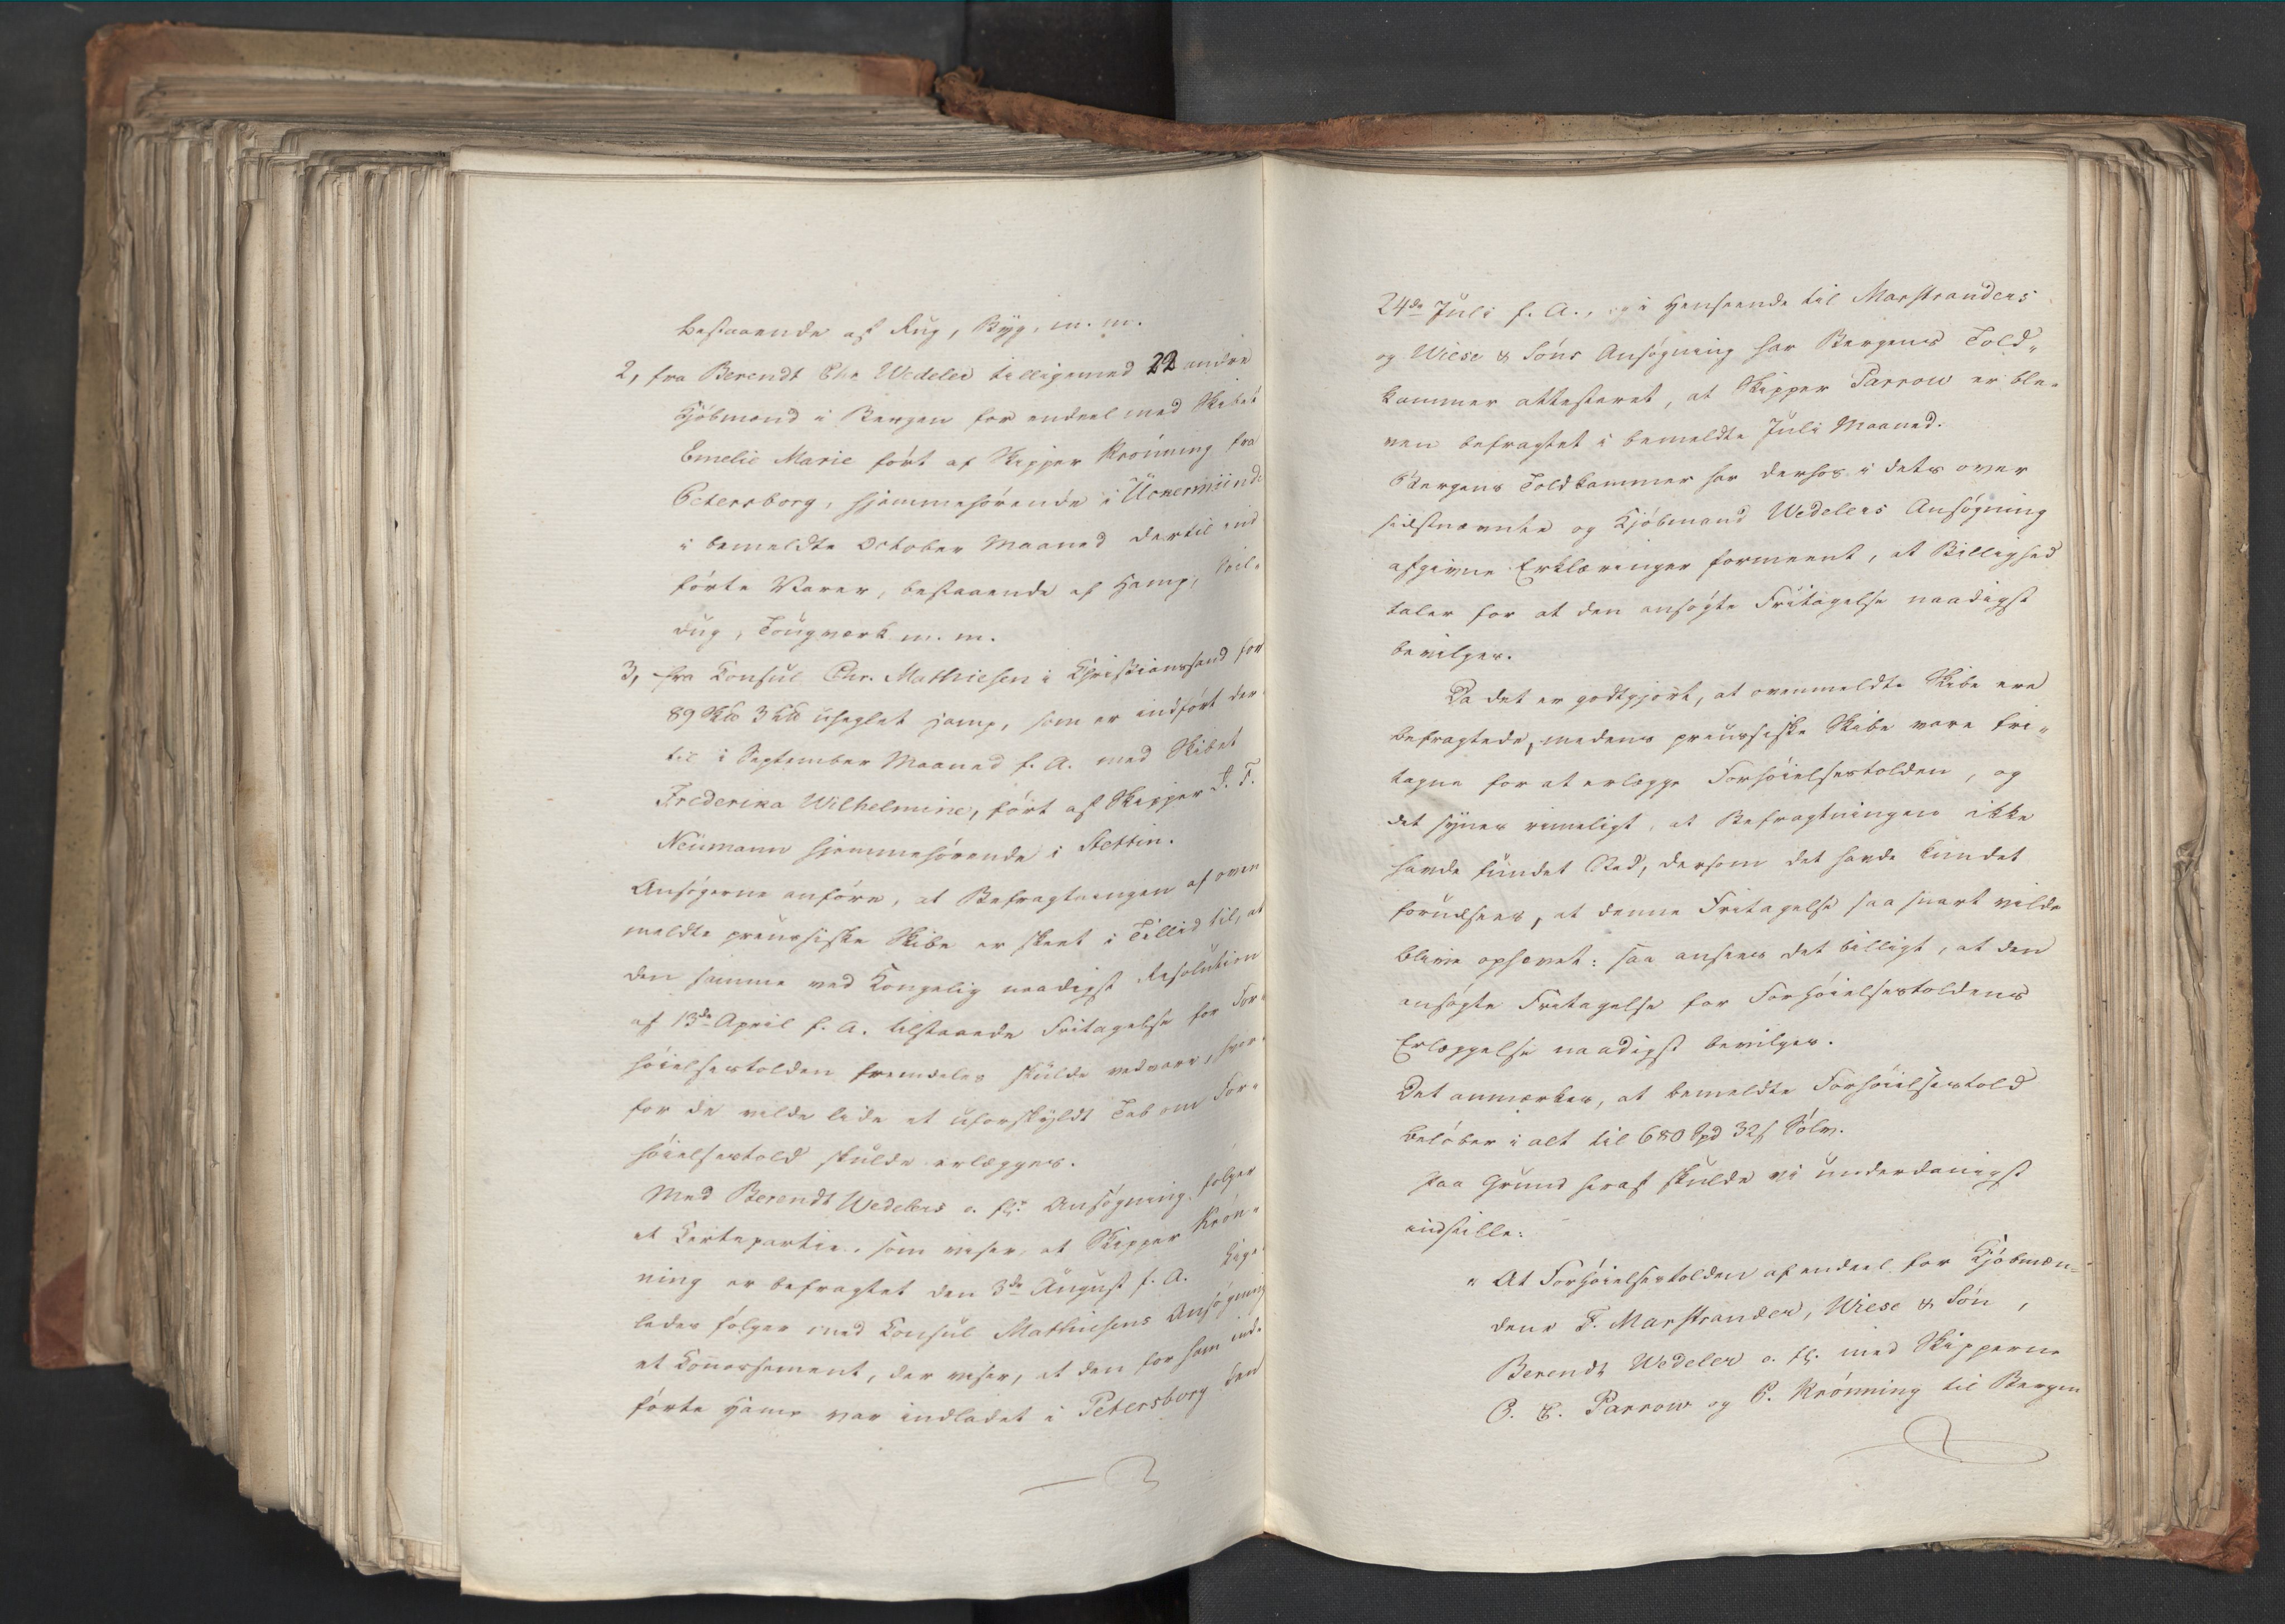 bestaaende af Rug, Byg, m. m.
2, fra Berendt Chr. Wedeler tilligemed 22 andre
Kjöbmænd i Bergen for endeel med Skibet
Emelie Marie fört af Skipper Krönning fra
Petersborg, hjemmehörende i Ückermünde
i bemeldte October Maaned dertil ind
förte Varer, bestaaende af Hamp, Seil-
dug, Tougværk m. m.
3, fra Consul Chr. Mathiesen i Christianssand for
89 Sk℔ 3 L℔ uheglet Hamp, som er indfört der
til i September Maaned f. A. med Skibet
Frederica Wilhelmine, fört af Skipper J. F.
Neumann hjemmehörende i Stettin.
Ansögerne anföre, at Befragtningen af oven
meldte preussiske Skibe er skeet i Tillid til, at
den samme ved Kongelig naadigst Resolution
af 13de April f. A. tilstaaede Fritagelse for For-
höielsestolden fremdeles skulde vedvare, hvor-
for de vilde lide et uforskyldt Tab om For-
höielsestold skulde erlægges.
Med Berendt Wedelers o. fl. Ansögning fölger
et Certepartie, som viser, at Skipper Krön-
ning er befragtet den 3de August f. A. Lige-
ledes fölger med Consul Mathiesens Ansögning
et Connossement, der viser, at den for ham ind-
förte Hamp var indladet i Petersborg den
24de Juli f. A., og i Henseende til Marstranders
og Wiese & Söns Ansögning har Bergens Told-
kammer attesteret, at Skipper Parrow er ble-
ven befragtet i bemeldte Juli Maaned.
Bergens Toldkammer har derhos i dets over
sidstnævnte og Kjöbmand Wedelers Ansögning
afgivne Erklæringer formeent, at Billighed
taler for at den ansögte Fritagelse naadigst
bevilges.
Da det er godtgjort, at ovenmeldte Skibe ere
befragtede, medens preussiske Skibe vare fri-
tagne for at erlægge Forhöielsestolden, og
det synes rimeligt, at Befragtningen ikke
havde fundet Sted, dersom det havde kundet
forudsees, at denne Fritagelse saa snart vilde
blive ophævet: saa ansees det billigt, at den
ansögte Fritagelse for Forhöielsestoldens
Erlæggelse naadigst bevilges.
Det anmærkes, at bemeldte Forhöielsestold
belöber i alt til 680 Spd 32 s Sölv.
Paa Grund heraf skulde vi underdanigst
indstille:
"At Forhöielsestolden af endeel for Kjöbmæn-
dene F. Marstrander, Wiese & Sön,
Berendt Wedeler o. fl. med Skipperne
C. E. Parrow og C. Krönning til Bergen